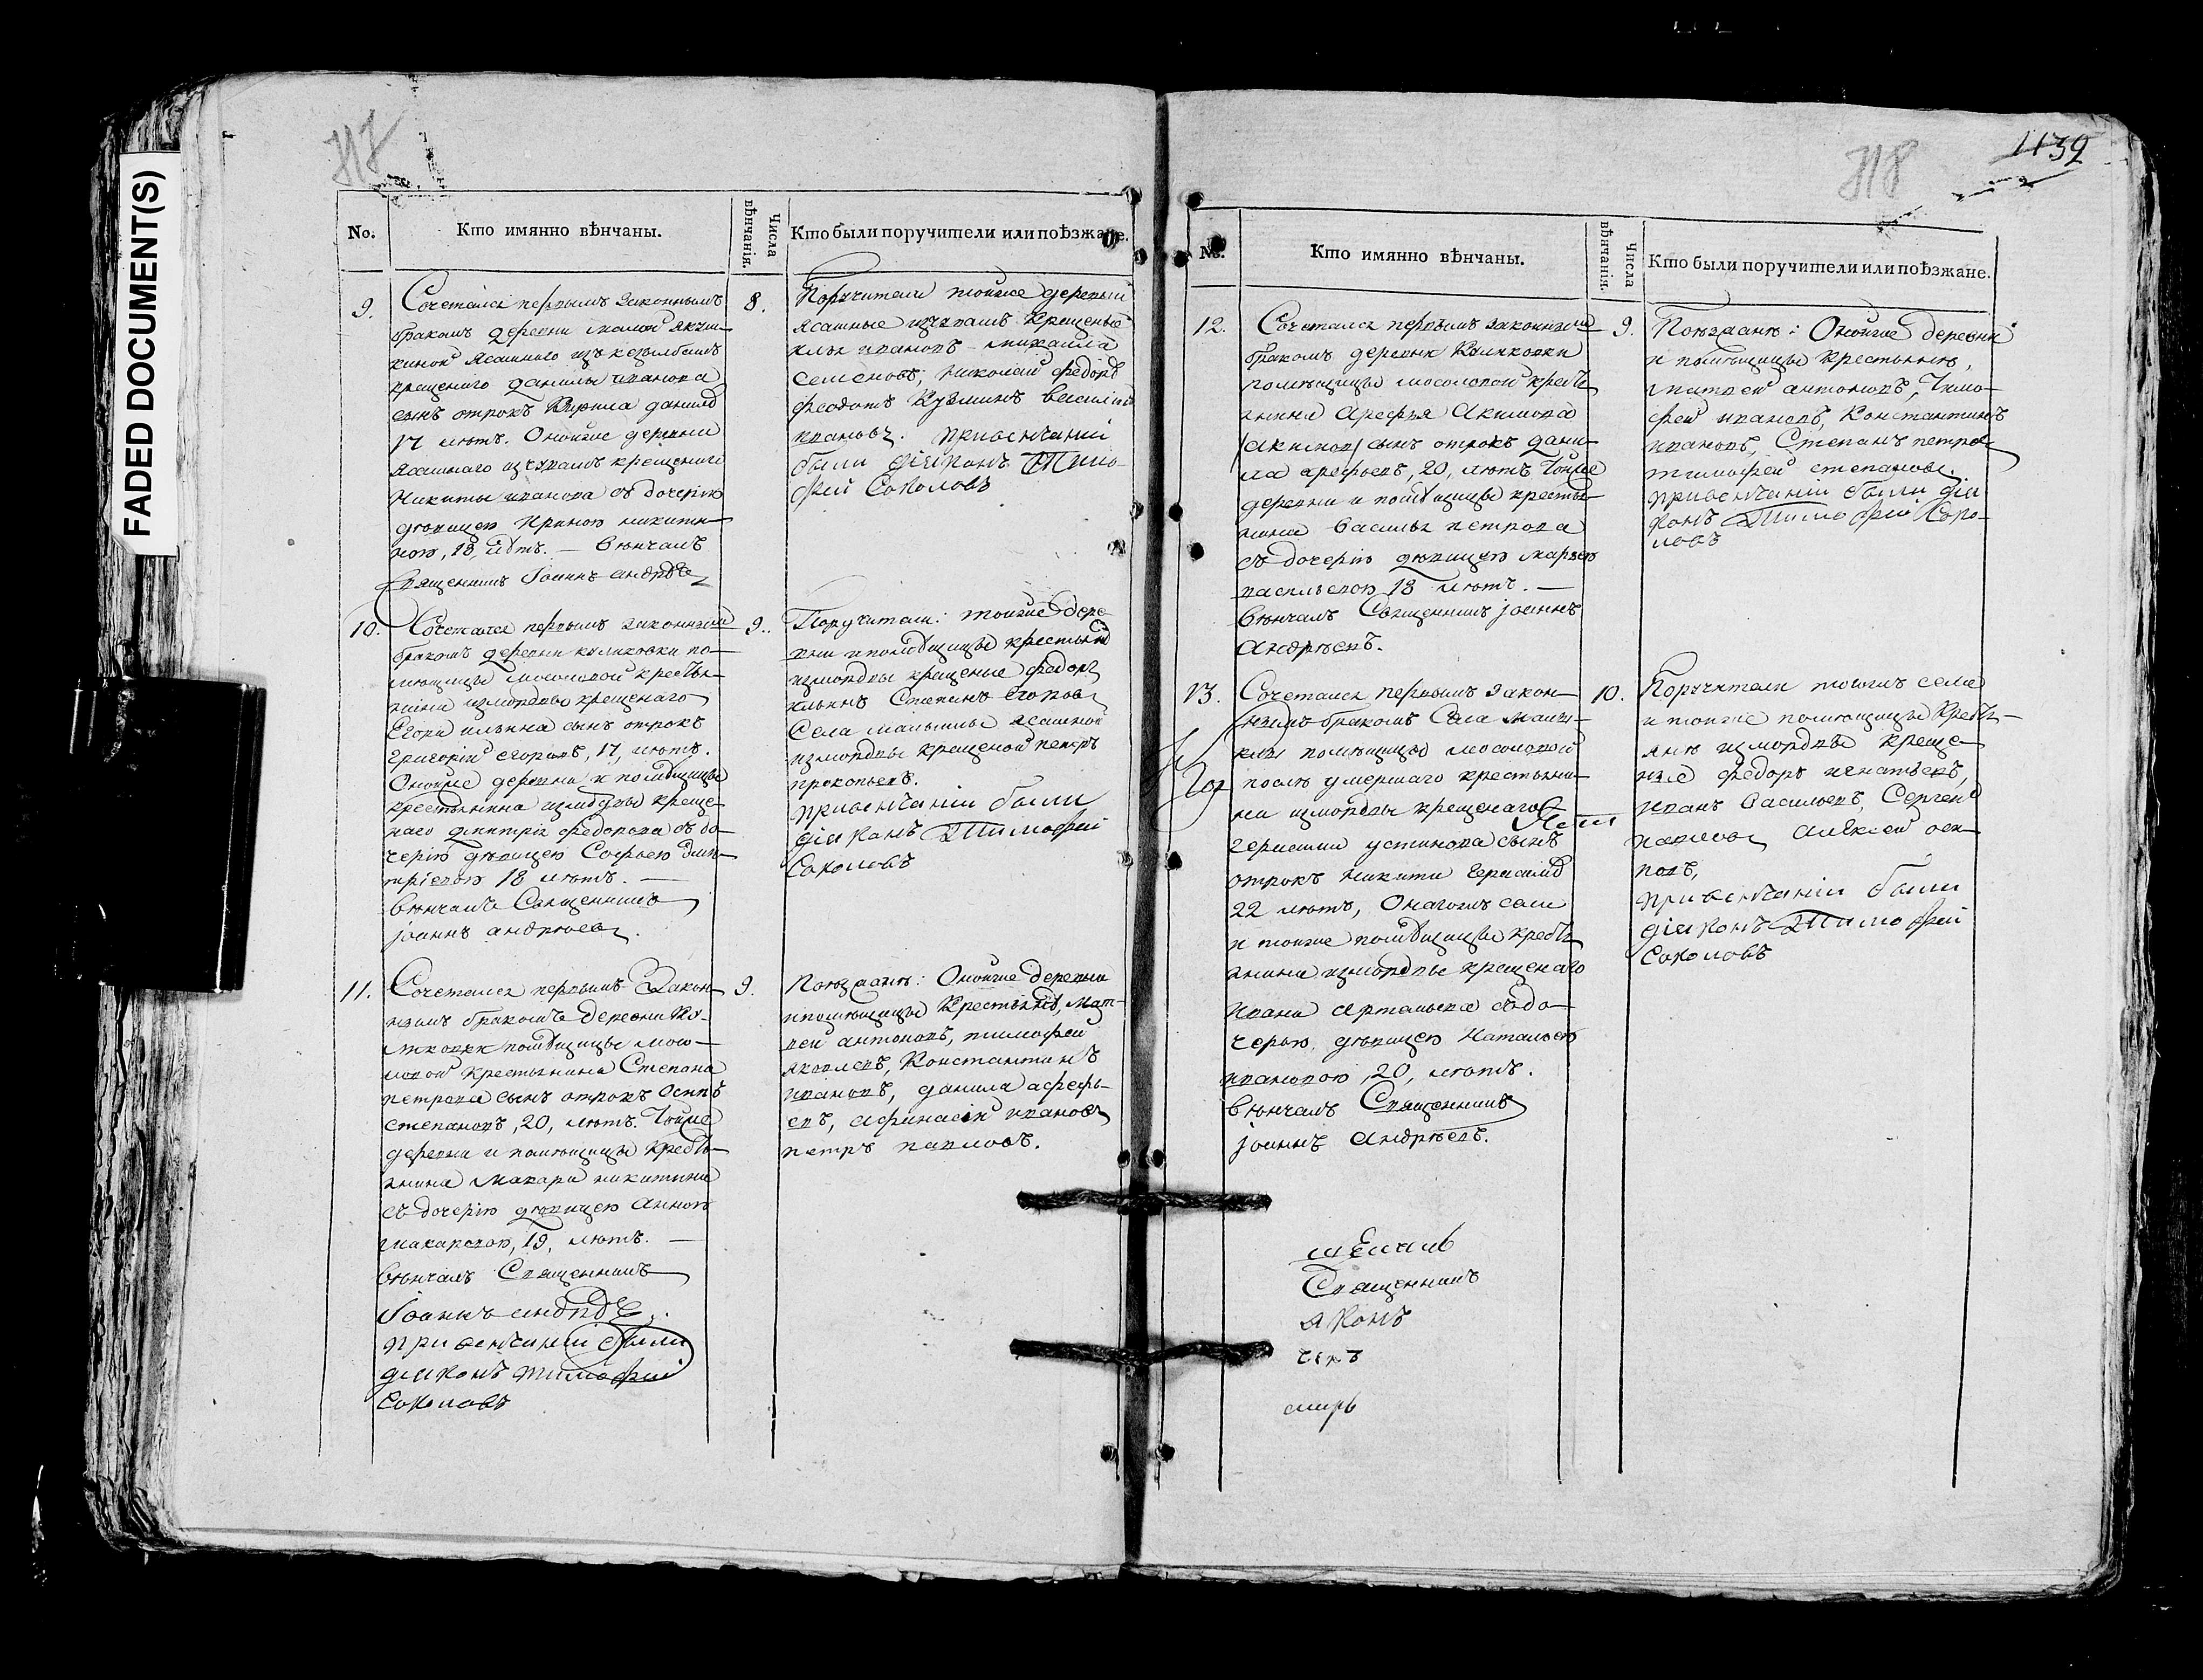 FADED DOCUMENT(S)
No.
Кто имянно вѣнчаны.
Числа вѣнчанія.
Кто были поручители или поѣзжане.
9.
Сочетался первымъ законнымъ
бракомъ деревни малой
ясашнаго
крещенаго данилы иванова
сынъ отрокъ данилов
17 лѣтъ. Оной же деревни
ясашнаго изчувашъ крещенаго
Никиты иванова съ дочерію
дѣвицею никити-
ною, 18, лѣтъ. — Вѣнчалъ
Священникъ Іоаннъ андрѣе
8.
Поручители тойже деревни
ясашные изчувашъ крещеные
ивановъ михаила
семеновъ, николай федоръ
феодотъ Кузминъ василий
ивановъ. привенчании
были діаконъ Тимо-
фей Соколовъ
10.
Сочетался первымъ законным
бракомъ деревни куликовки по-
мѣщицы мосоловой крестья-
нина измордвы крещенаго
Егора ильина сынъ отрокъ
Григорій егоровъ, 17, лѣтъ.
Оной же деревни и помѣщицы
крестьянина измордвы креще-
наго дмитрія федорова съ до-
черію дѣвицею Софьею дми-
тріевою 18 лѣтъ. —
Вѣнчалъ Священникъ
іоаннъ андрѣевъ.
9.
Поручители: тойже дере
вни ипомѣщицы крестьяне
измордвы крещеные федоръ
ильинъ Степанъ Егоровъ
Села ясашной
измордвы крещеной петръ
прокопьевъ.
привенчаніи были
діаконъ Тимофей
Соколовъ
11.
Сочетался первымъ Закон-
нымъ бракомъ деревни Ку-
ликовки помѣщицы мосо-
ловой крестьянина Степана
петрова сынъ отрокъ Осипъ
степановъ, 20, лѣтъ. Тойже
деревни и помѣщицы кресть-
янина Макара никитина
съ дочерію дѣвицею анною
макаровою, 19, лѣтъ. —
Вѣнчалъ Священникъ
Іоаннъ
привенчании были
діаконъ тимофей
Соколовъ
9.
Поѣзжанѣ: Оной же деревни
ипомѣщицы Крестьянѣ, Мат-
вей антоновъ, тимофей
яковлевъ, Константинъ
ивановъ, данила арефь-
евъ, афанасій ивановъ
петръ павловъ.
1139
No.
Кто имянно вѣнчаны.
Числа вѣнчанія.
Кто были поручители или поѣзжане.
12.
Сочетался первымъ законным
бракомъ деревни Куликовки
помѣщицы мосоловой кресть
янина Арефья Акимова
(акимов) сынъ отрокъ дани-
ла арефьевъ, 20, лѣтъ Тойже
деревни и помѣщицы крестья-
нина Василья петрова
съ дочерію дѣвицею марьею
васильевою 18 лѣтъ. —
Вѣнчалъ Священникъ іоаннъ
Андрѣевъ.
9.
Поѣзжанѣ: Оной же деревни
и помѣщицы крестьянѣ,
матвей антоновъ, Тимо-
фей ивановъ, Константинъ
ивановъ, Степанъ петров
тимофей степановъ.
привенчаніи были діа
конъ Тимофей Соко-
ловъ
13.
Сочетался первымъ закон-
нымъ бракомъ Села
помѣщицы мосоловой
послѣ умершаго крестьяни-
на измордвы крещенаго
герасима устинова сынъ
отрокъ Никита Герасимов
22 лѣтъ, Онагожъ села
и тойже помѣщицы кресть
янина измордвы крещенаго
Ивана артемьева съ до-
черью дѣвицею Натальею
ивановою, 20, лѣтъ.
Вѣнчалъ Священникъ
іоаннъ Андрѣевъ.
10.
Поручители тогожъ села
и тойже помѣщицы кресть-
янѣ измордвы креще-
ные федоръ игнатьевъ,
иванъ Васильевъ, Сергей
павловъ Алексей оси-
повъ,
привенчаніи были
діаконъ Тимофей
Соколовъ
Священникъ